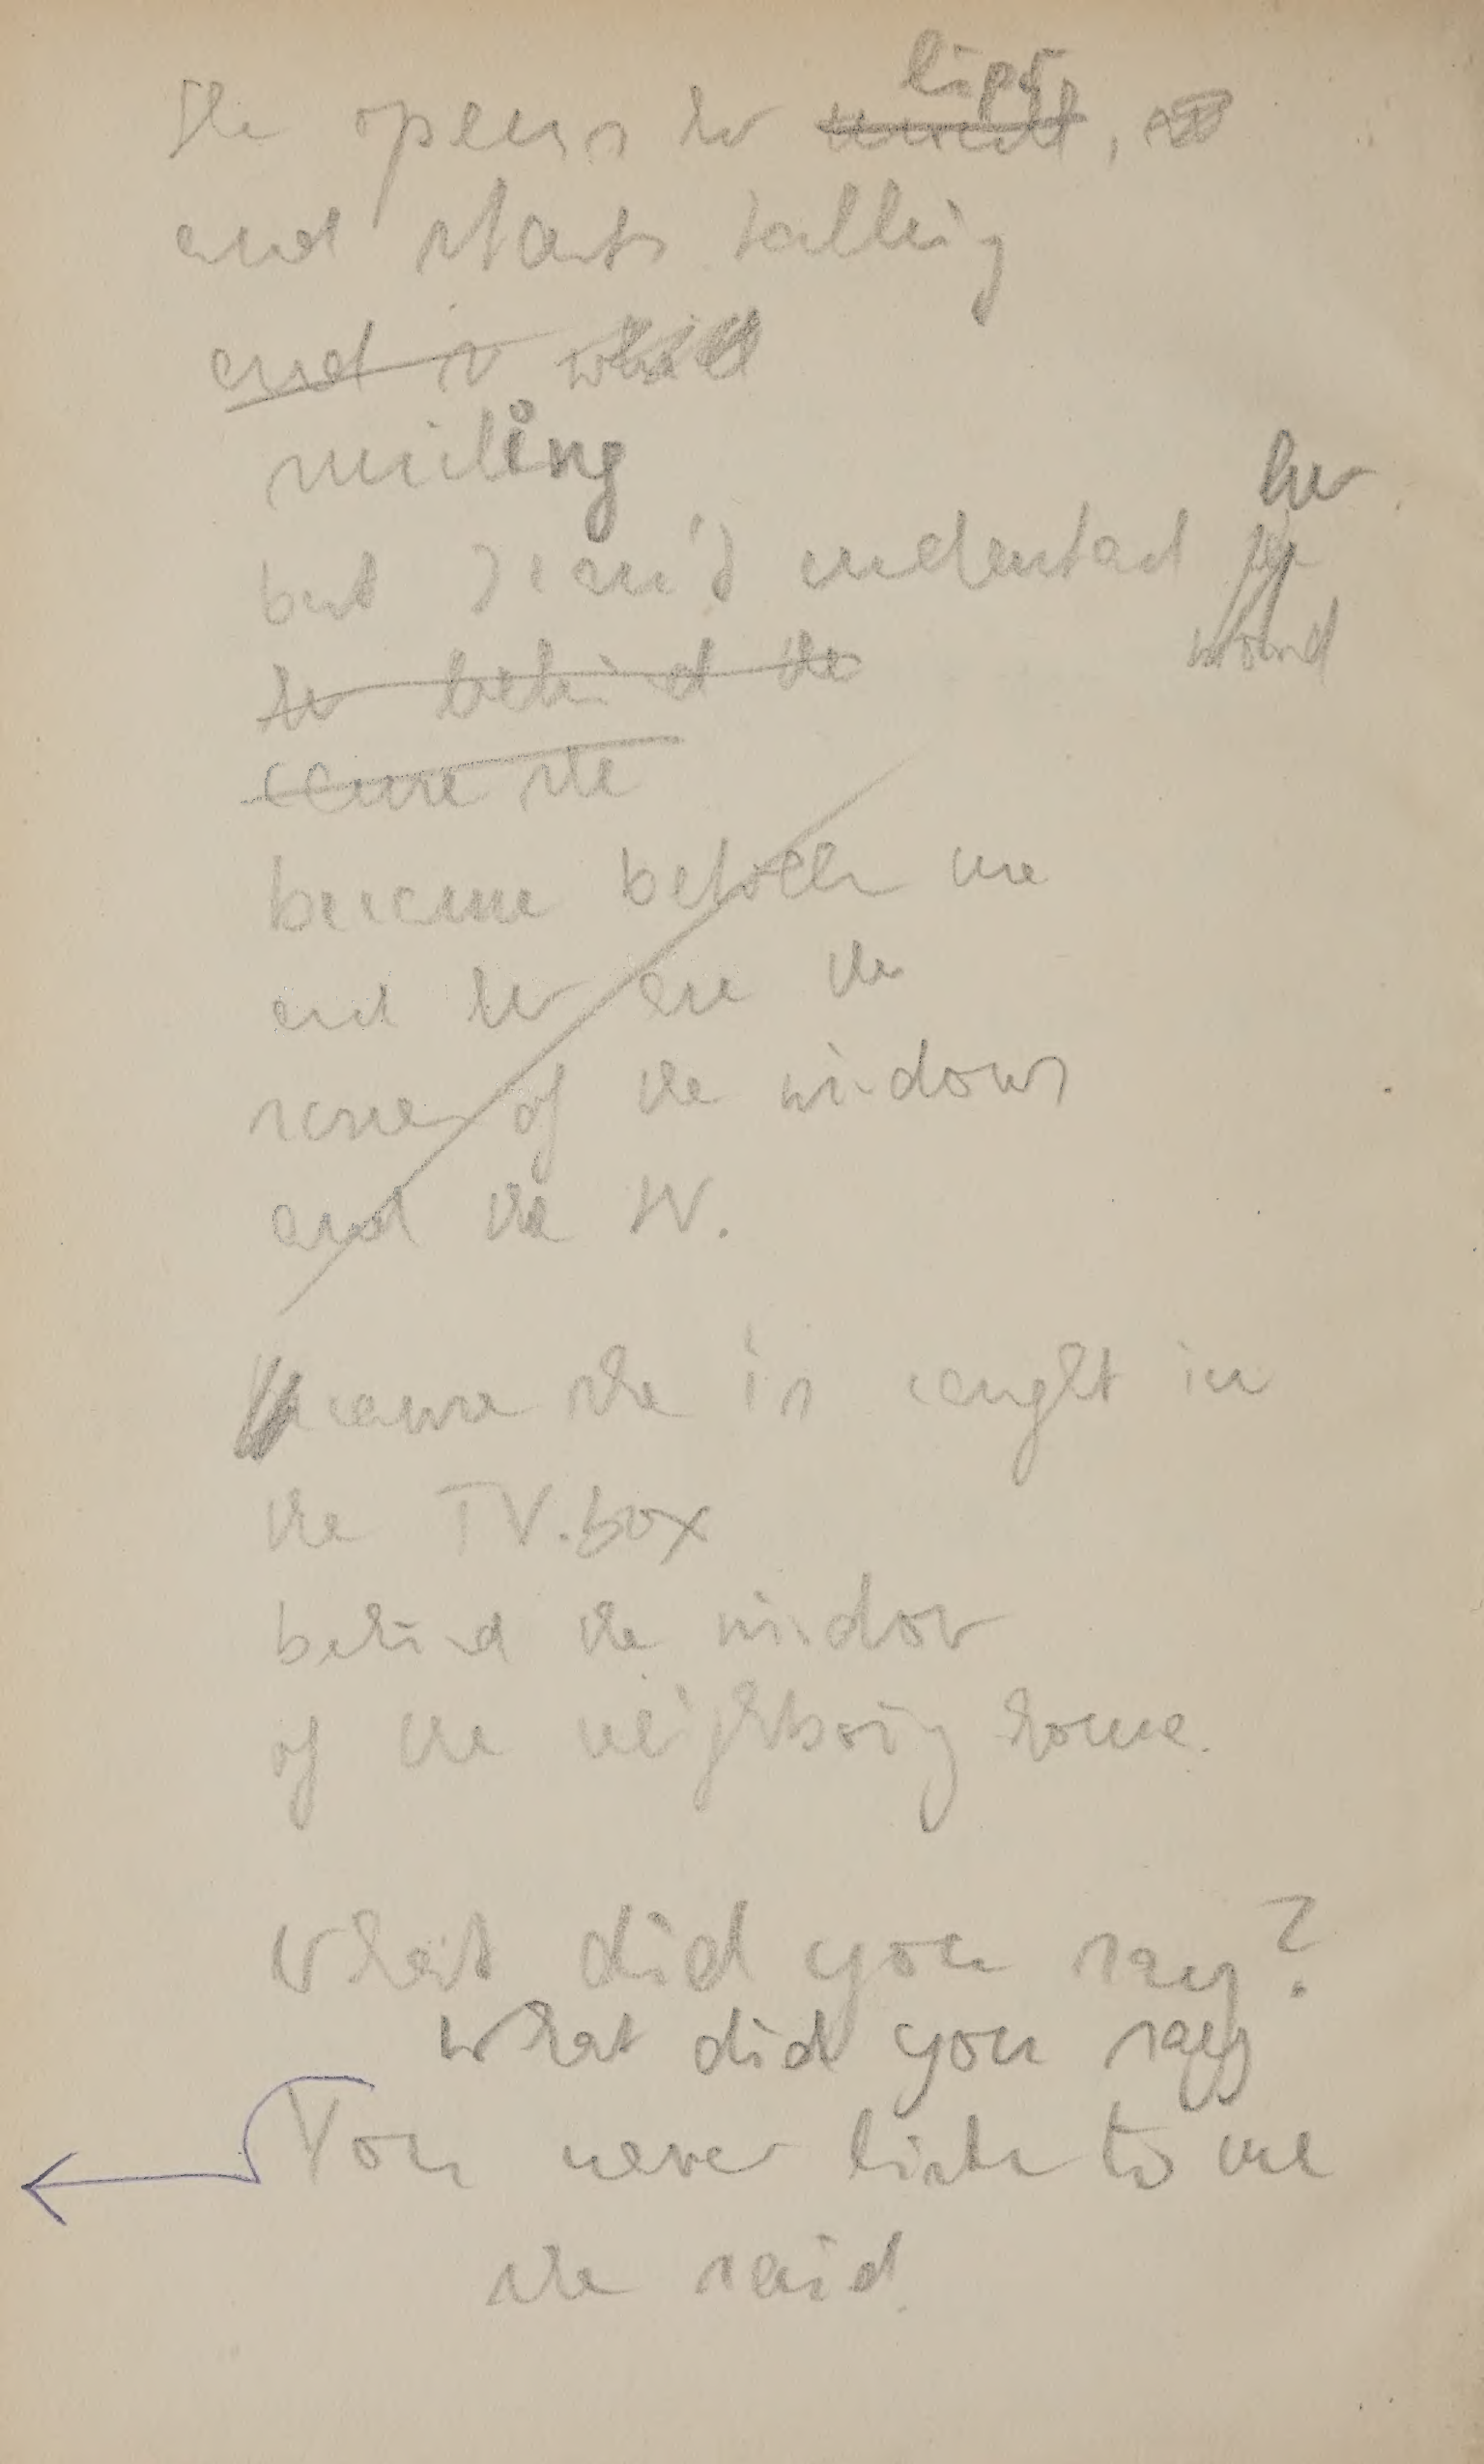 lips
She opens her mouth,
and starts talking
and is
smiling
but I can't understand her
word
her behind the
cause she
because between me
and her are the
screen of the windows
and the TV.
cause she is caught in
the TV.box
behind the window
of the neighboring house.
What did you say?
What did you say
You never listen to me
she said.